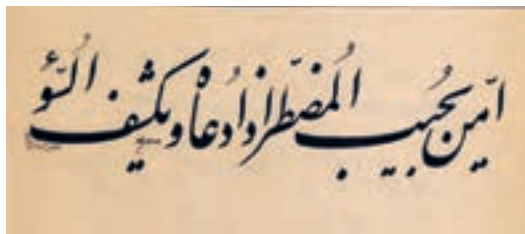 امّن یجُیب المُضطّر اذا دُعاهُ و یکشِف السّوُء